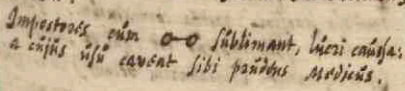 Impostores cum o-o sublimant, lucri causa:
a cujus usu caveat sibi prudens Medicus.